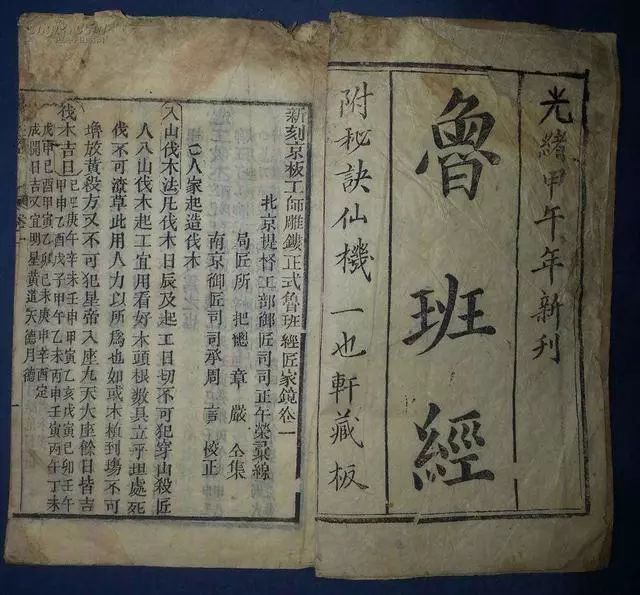 光緒甲午年新刊
魯班經
附秘訣仙機一也軒藏板
新刻京板工師雕鏤正式魯班經匠家鏡卷一
北京提督工部御匠司司正午榮彙線
局匠所把總章嚴仝集
南京御匠司司承周言校正
人家起造伐木
入山伐木法凡伐木日辰及起工日切不可犯穿山殺匠
人入山伐木起工宜用看好木頭根數具立平坦處死
伐不可潦草此用人力以所爲也如或木植到塲不可
堆放黃殺方又不可犯皇帝入座九天大座餘日皆吉
伐木吉日己巳庚午辛未壬申甲寅乙亥戊寅己卯壬午
甲申乙酉戊子甲午乙未丙申壬寅丙午丁未
戊申己酉甲寅乙卯己未庚申辛酉定
成開日吉又宜明星黃道天德月德